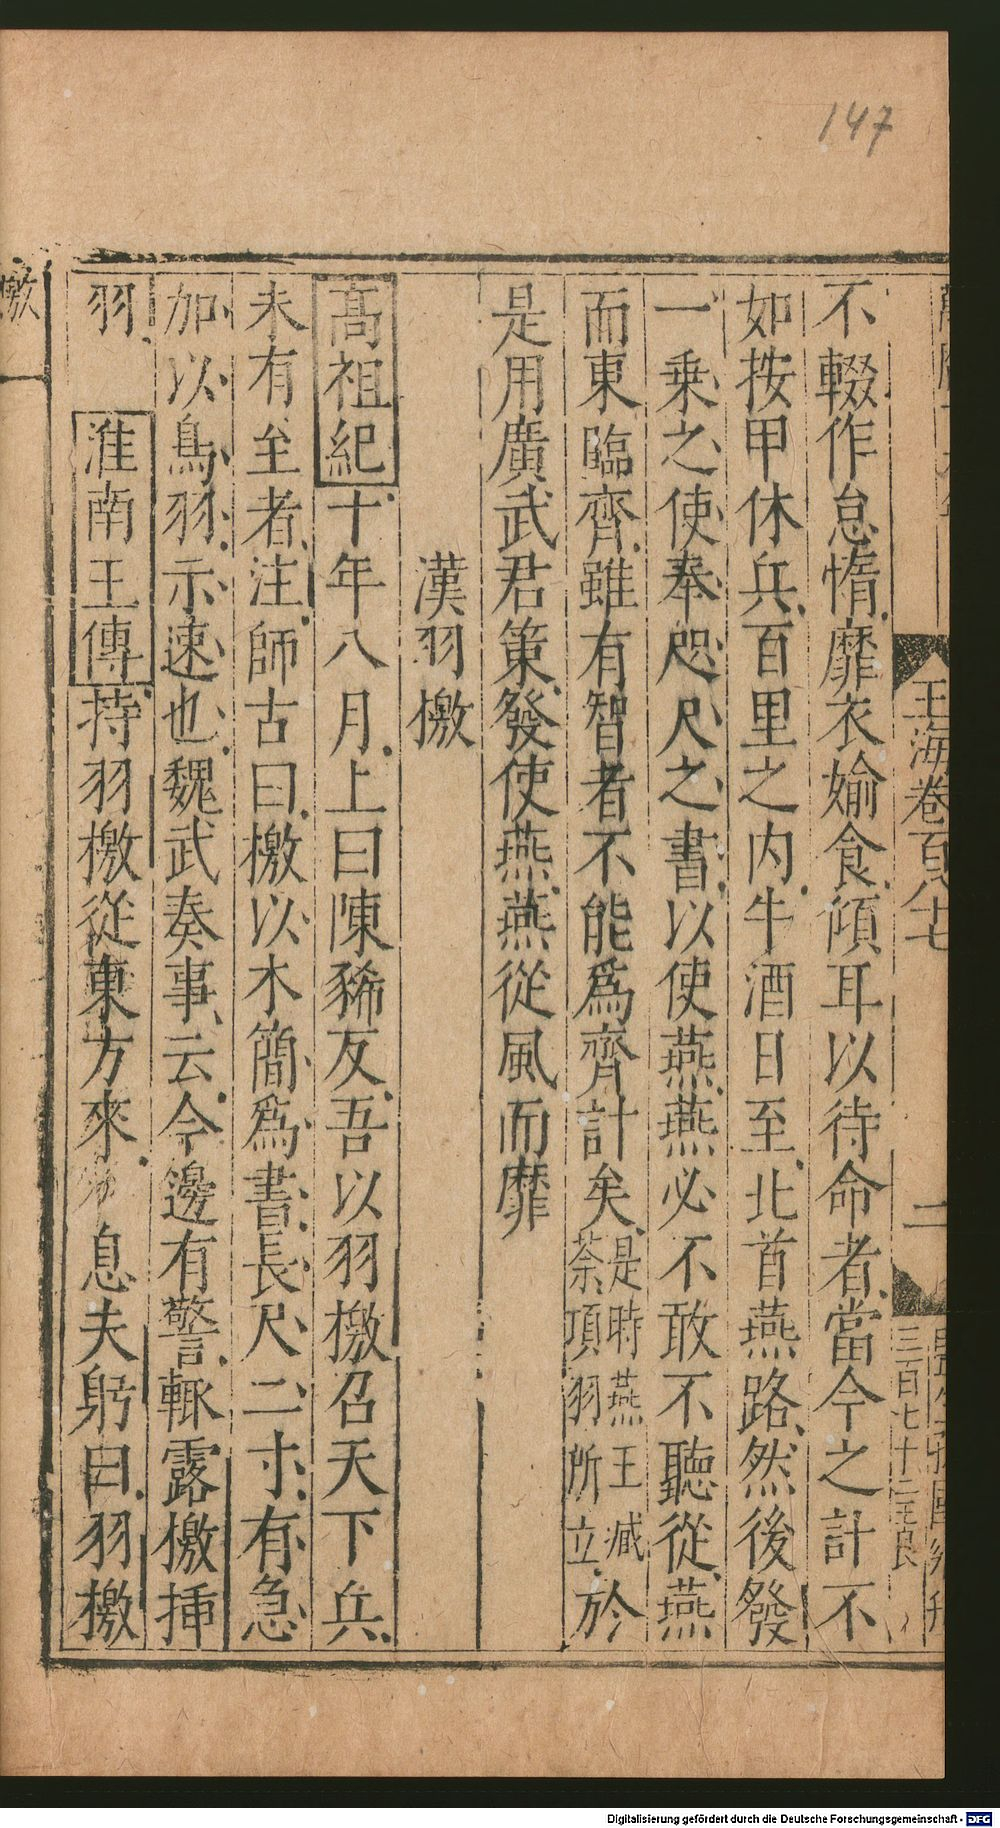 147
玉海卷百八七
二
三百七十二 良
不輟作怠惰靡衣媮食傾耳以待命者當今之計不
如按甲休兵百里之内牛酒日至北首燕路然後發
一乗之使奉咫尺之書以使燕燕必不敢不聽從燕
而東臨齊雖有智者不能爲齊計矣是時燕王臧荼項羽所立於
是用廣武君策發使燕燕從風而靡
漢羽檄
髙祖紀十年八月上曰陳豨反吾以羽檄召天下兵
未有至者注師古曰檄以木簡爲書長尺二寸有急
加以鳥羽示速也魏武奏事云今邊有警輒露檄挿
羽 淮南王傳持羽檄從東方來 息夫躬曰羽檄
檄
Digitalisierung gefördert durch die Deutsche Forschungsgemeinschaft - DFG